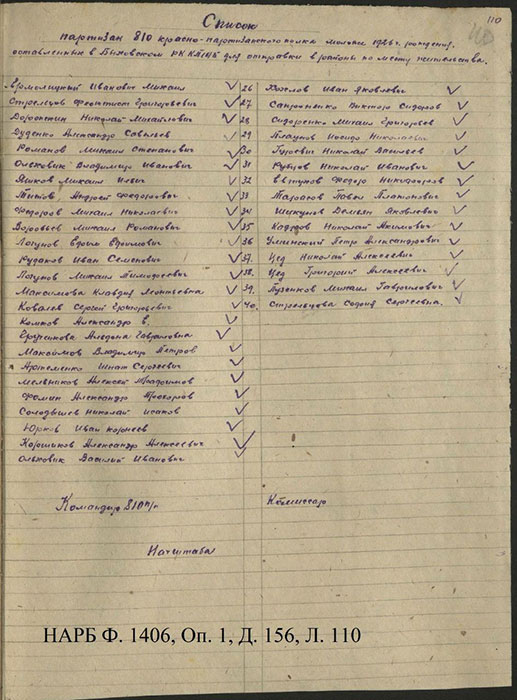 110
Список
партизан 810 красно-партизанского полка моложе 1926 г. рождения,
оставленных в Быховском РК КП(б)Б для отправки в районы по месту жительства.
Ярмолицкий Иванович Михаил
Стрельцов Феоктист Григорьевич
Доронькин Николай Михайлович
Дуденко Александр Савельев
Романов Михаил Степанович
Ольховик Владимир Иванович
Яшков Михаил
Титов Андрей Федорович
Федоров Михаил Николаевич
Воробьев Михаил Романович
Логунов
Рудаков Иван Семенович
Логунов Михаил Тимофеевич
Максимова Клавдия Леонтьевна
Ковалев Сергей Григорьевич
Комков Александр В.
Гавриловна
Максимов Владимир Петров
Артеменко Игнат Сергеевич
Мельников Алексей Трофимов
Фомин Александр Прохоров
Солодышев Николай Исаков
Юрков Иван Корнеев
Коршиков Александр Алексеевич
Ольховик Василий Иванович
26 Козлов Иван Яковлевич
27 Сапроненко Виктор Сидоров
28 Сидоренко Михаил Григорьев
29 Плаунов Иосиф Николаевич
30 Гуревич Николай Васильев
31 Рубцов Николай Иванович
32 Евтунов Федор Никифоров
33 Таранов Павел Платонович
34 Шикунов Демьян Яковлевич
35 Кадядов Николай Акимович
36 Улинский Петр Александрович
37. Цед Николай Алексеевич
38. Цед Григорий Алексеевич
39. Пузенков Михаил Гаврилович
40. Стрельцова София Сергеевна
Командир 810 п/п
Комиссар
Нач штаба
НАРБ Ф. 1406, Оп. 1, Д. 156, Л. 110